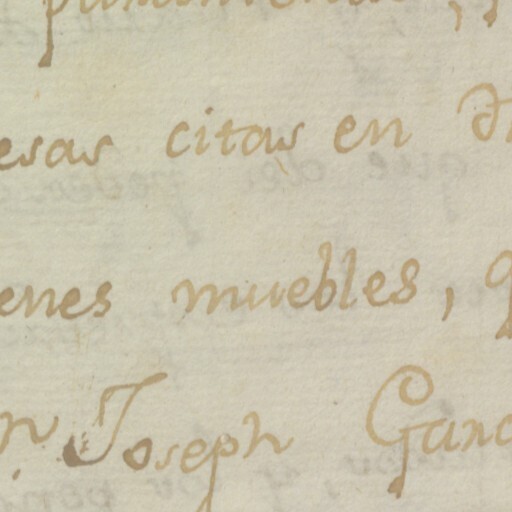 esas citas en
enes muebles,
Joseph Garc